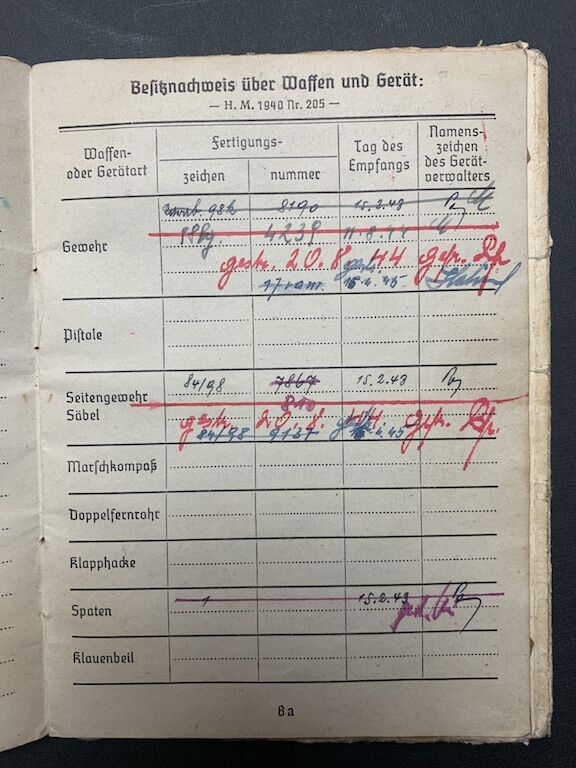 Besitznachweis über Waffen und Gerät:
— H. M. 1940 Nr. 205 —
Waffen- oder Geräteart Fertigungs- zeichen nummer Tag des Empfangs Namens- zeichen des Gerät- verwalters
Gewehr 98k 8190 15.2.43
98kg. 4239 11.8.44
gestr. 20.8.44 gefr.
15.4.45
Pistole
Seitengewehr Säbel 84/98 7867 15.2.43
gestr. 20.8.44 gefr.
84/98 9137 16.4.45
Marschkompaß
Doppelfernrohr
Klapphacke
Spaten 1 15.2.43
Klauenbeil
8a